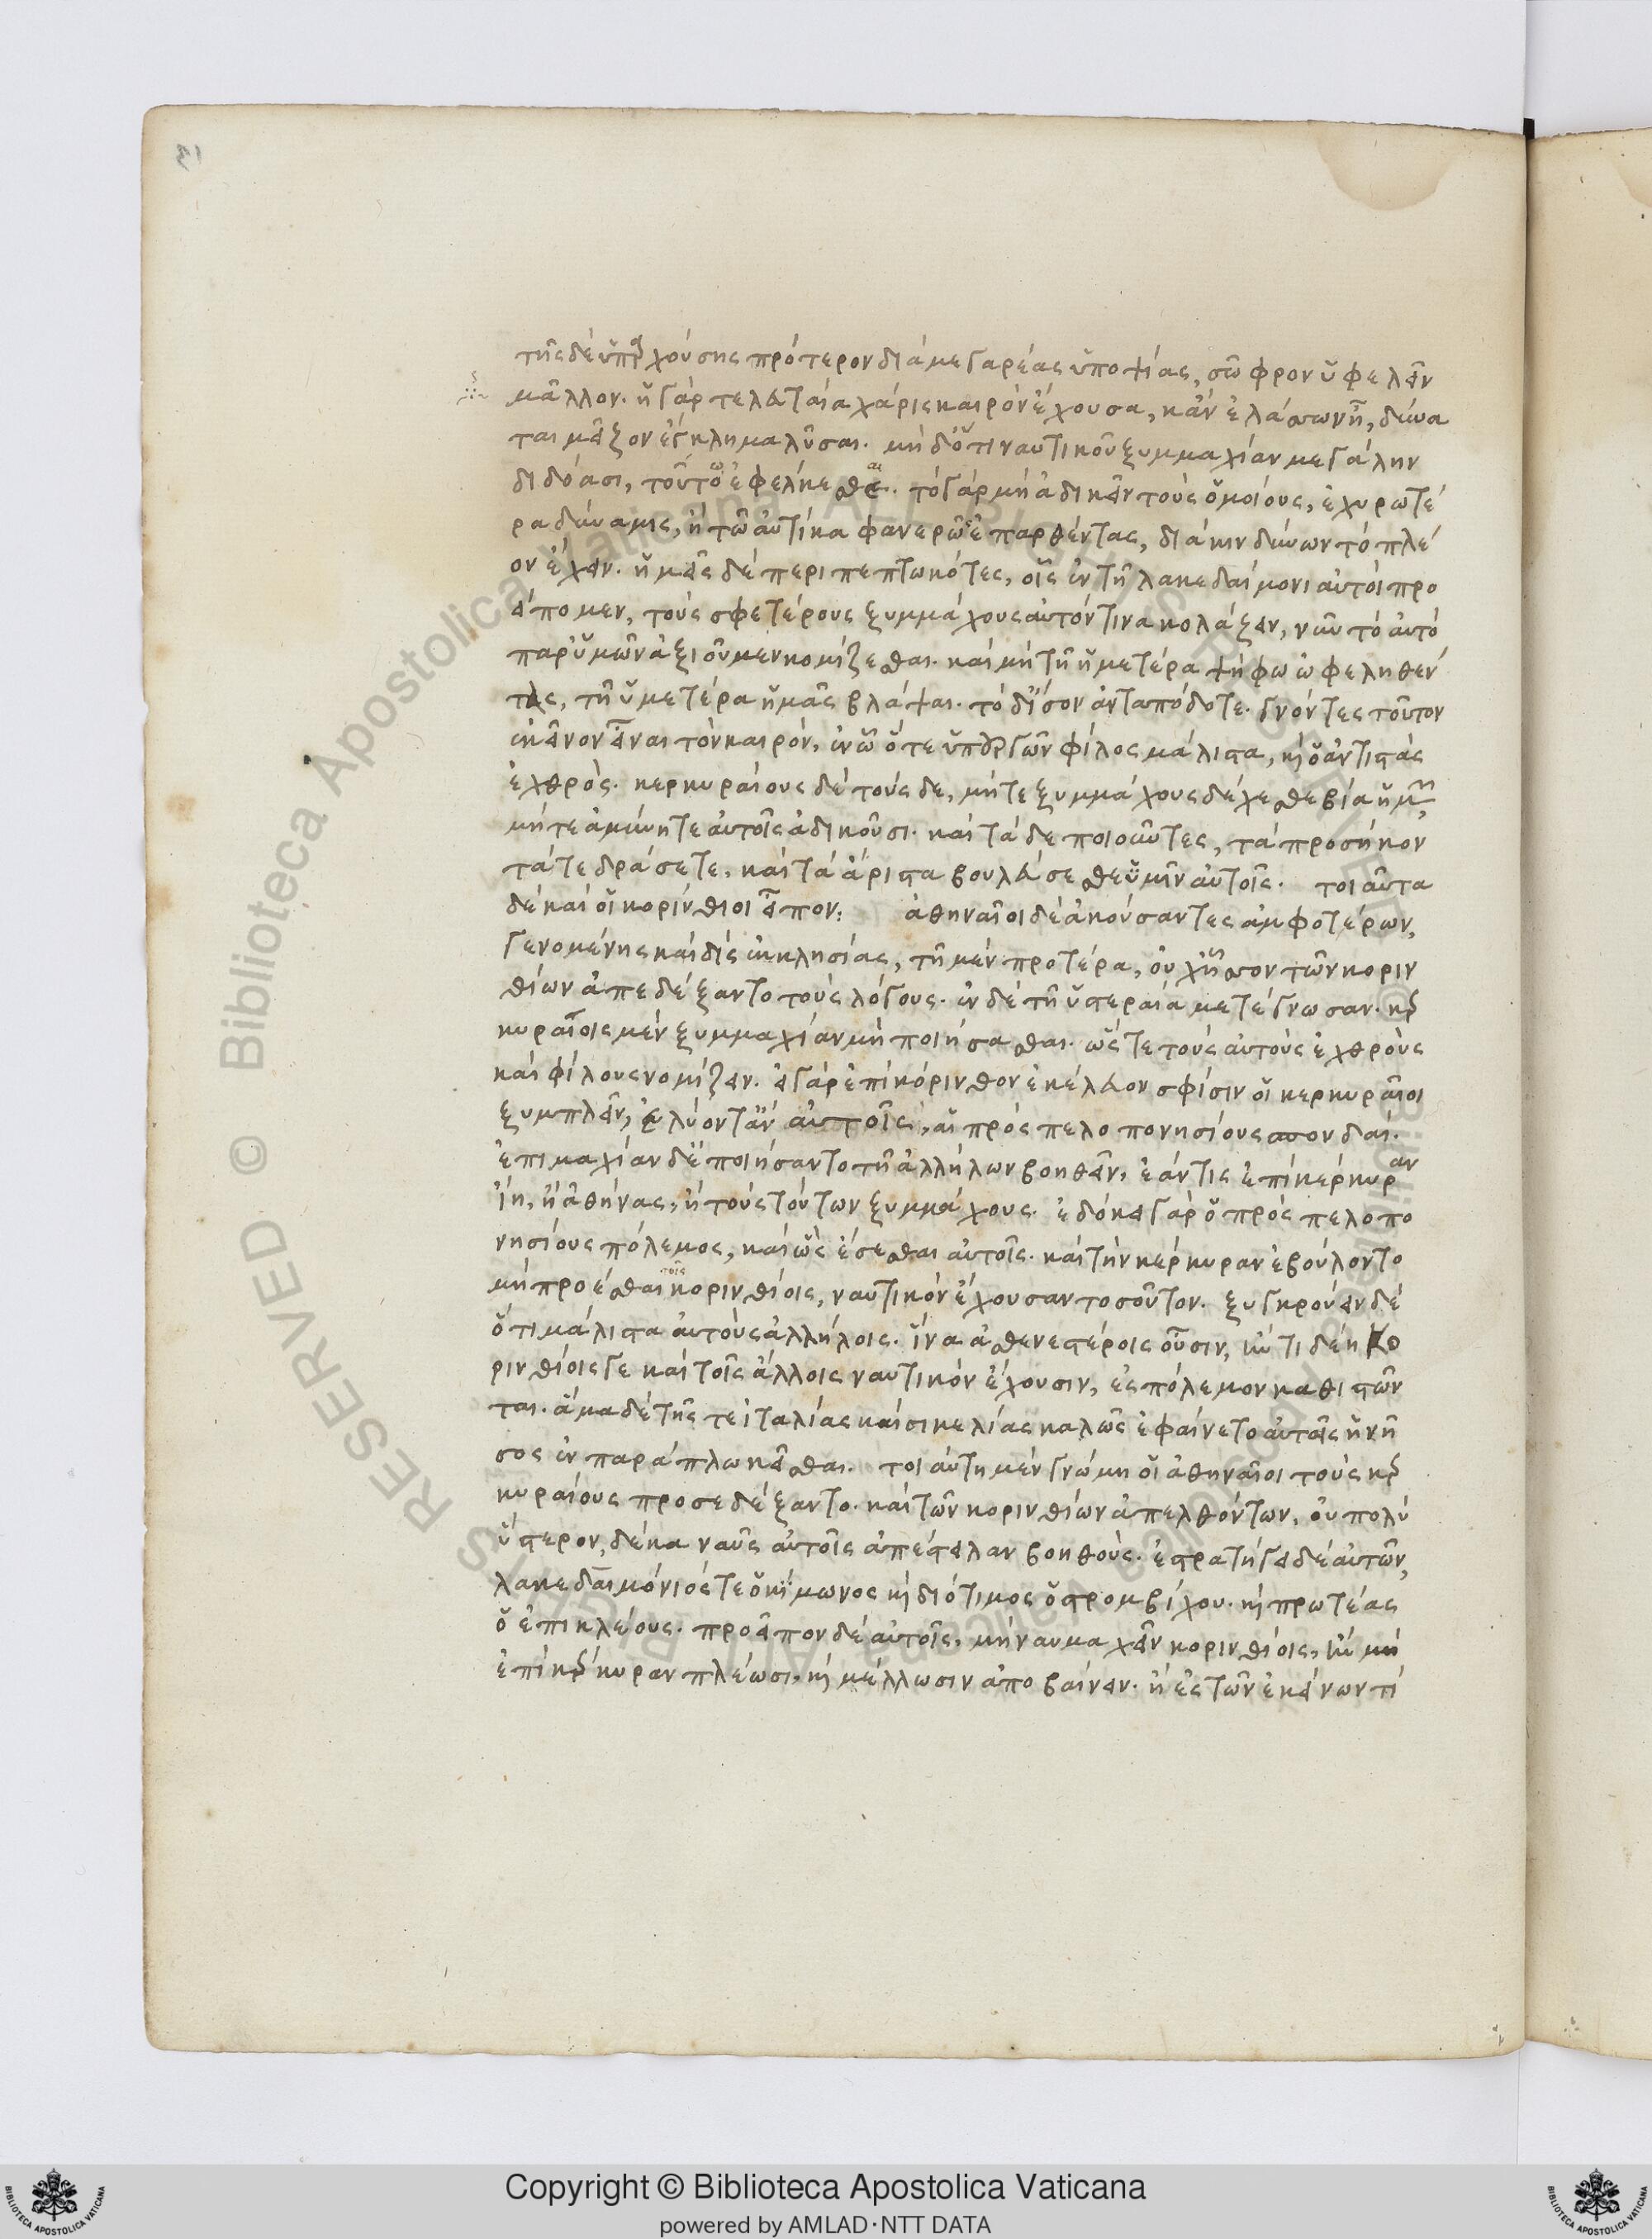 τῆς δὲ ὑπαρχούσης πρότερον διὰ μεγαρέας ὑποψίας, σῶφρον ὑφελεῖν
μᾶλλον. ἡ γὰρ τελευταία χάρις καιρὸν ἔχουσα, κἂν ἐλάσσων ἦ, δύνα
ται μεῖζον ἔγκλημα λῦσαι. μὴ δ' ὅτι ναυτικοῦ ξυμμαχίαν μεγάλην
διδόασι, τούτω ἐφέλκεσθαι. τὸ γὰρ μὴ ἀδικεῖν τοὺς ὁμοίους, ἐχυρωτέ
ρα δύναμις, ἢ τῶ αὐτίκα φανερῶ ἐπαρθέντας, διὰ κινδύνων τὸ πλέ
ον ἔχειν. ἡμεῖς δὲ περιπεπτωκότες, οἷς ἐν τῆ λακεδαίμονι αὐτοὶ προ
είπομεν, τοὺς σφετέρους ξυμμάχους αὐτόν τινα κολάζειν, νῦν τὸ αὐτὸ
παρ' ὑμῶν ἀξιοῦμεν κομίζεσθαι. καὶ μὴ τῆ ἡμετέρα ψήφω ὠφεληθέν
τες, τῆ ὑμετέρα ἡμᾶς βλάψαι. τὸ δ' ἴσον ἀνταπόδοτε. γνόντες τοῦτον
ἐκεῖνον εἶναι τὸν καιρὸν, ἐν ὧ ὅ τε ὑπουργῶν φίλος μάλιστα, καὶ ὁ ἀντιστὰς
ἐχθρός. κερκυραίους δὲ τούσδε, μήτε ξυμμάχους δέχεσθε βία ἡμῶν,
μήτε ἀμύνητε αὐτοῖς ἀδικοῦσι. καὶ τάδε ποιοῦντες, τὰ προσήκον
τά τε δράσετε, καὶ τὰ ἄριστα βουλεύσεσθε ὑμῖν αὐτοῖς. τοιαῦτα
δὲ καὶ οἱ κορίνθιοι εἶπον: ἀθηναῖοι δὲ ἀκούσαντες ἀμφοτέρων,
γενομένης καὶ δὶς ἐκκλησίας, τῆ μὲν προτέρα, οὐχ ἧσσον τῶν κοριν
θίων ἀπεδέξαντο τοὺς λόγους. ἐν δὲ τῆ ὑστεραία μετέγνωσαν. κερ
κυραίοις μὲν ξυμμαχίαν μὴ ποιήσασθαι. ὥστε τοὺς αὐτοὺς ἐχθροὺς
καὶ φίλους νομίζειν. εἰ γὰρ ἐπὶ κόρινθον ἐκέλευον σφίσιν οἱ κερκυραῖοι
ξυμπλεῖν, ἐλύοντ' ἂν αὐτοῖς, αἱ πρὸς πελοπονησίους σπονδαί.
ἐπιμαχίαν δ' ἐποιήσαντο τῆ ἀλλήλων βοηθεῖν, ἐάν τις ἐπὶ κέρκυραν
ἴη, ἢ ἀθήνας, ἢ τοὺς τούτων ξυμμάχους. ἐδόκει γὰρ ὁ πρὸς πελοπο
νησίους πόλεμος, καὶ ὣς ἔσεσθαι αὐτοῖς. καὶ τὴν κέρκυραν ἐβούλοντο
μὴ προέσθαι τοῖς κορινθίοις, ναυτικὸν ἔχουσαν τοσοῦτον. ξυγκρούειν δὲ
ὅτι μάλιστα αὐτοὺς ἀλλήλοις. ἵνα ἀσθενεστέροις οὖσιν, ἤν τι δέη κο
ρινθίοις γε καὶ τοῖς ἄλλοις ναυτικὸν ἔχουσιν, ἐς πόλεμον καθιστῶν
ται. ἅμα δὲ τῆς τε ἰταλίας καὶ σικελίας καλῶς ἐφαίνετο αὐτοῖς ἡ νῆ
σος ἐν παράπλω κεῖσθαι. τοιαύτη μὲν γνώμη οἱ ἀθηναῖοι τοὺς κερ
κυραίους προσεδέξαντο. καὶ τῶν κορινθίων ἀπελθόντων, οὐ πολὺ
ὕστερον, δέκα ναῦς αὐτοῖς ἀπέστειλαν βοηθούς. ἐστρατήγει δὲ αὐτῶν,
λακεδαιμόνιός τε ὁ κίμωνος καὶ διότιμος ὁ στρομβίχου. καὶ πρωτέας
ὁ ἐπικλέους. προεῖπον δὲ αὐτοῖς, μὴ ναυμαχεῖν κορινθίοις, ἢν μὴ
ἐπὶ κέρκυραν πλέωσι. καὶ μέλλωσιν ἀποβαίνειν. ἢ ἐς τῶν ἐκείνων τι
Copyright © Biblioteca Apostolica Vaticana
powered by AMLAD·NTT DATA